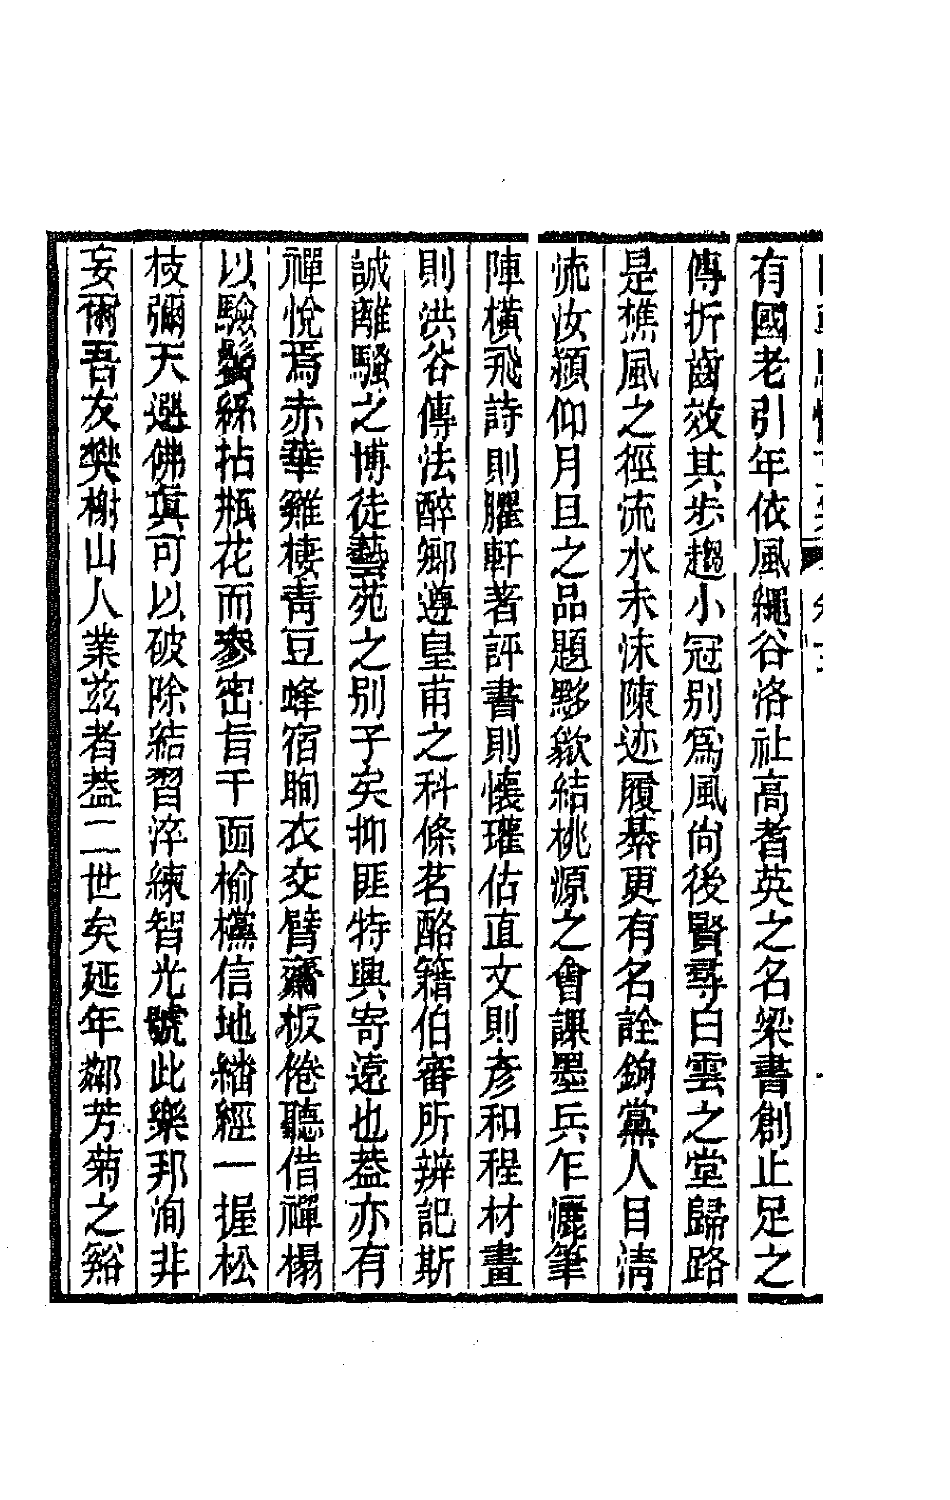 有國老引年依風繩谷洛社高耆英之名梁書創止足之
傳折齒效其步趨小冠别爲風尙後賢尋白雲之堂歸路
是樵風之徑流水未沫陳迹履綦更有名詮鉤黨人目淸
流汝潁仰月旦之品題黟歙結桃源之會課墨兵乍灑筆
陣橫飛詩則臞軒著評書則懷瓘估直文則彥和程材畫
則洪谷傳法醉鄉遵皇甫之科條茗酪籍伯審所辨記斯
誠離騷之博徒藝苑之别子矣抑匪特興寄遠也葢亦有
禪悅焉赤華雞棲靑豆蜂宿眴衣交臂齋板倦聽借禪榻
以驗鬢絲拈瓶花而參密旨干面榆欓信地繙經一握松
枝彌天選佛眞可以破除結習淬練智光號此樂邦洵非
妄爾吾友樊榭山人業兹者葢二世矣延年鄰芳菊之谿